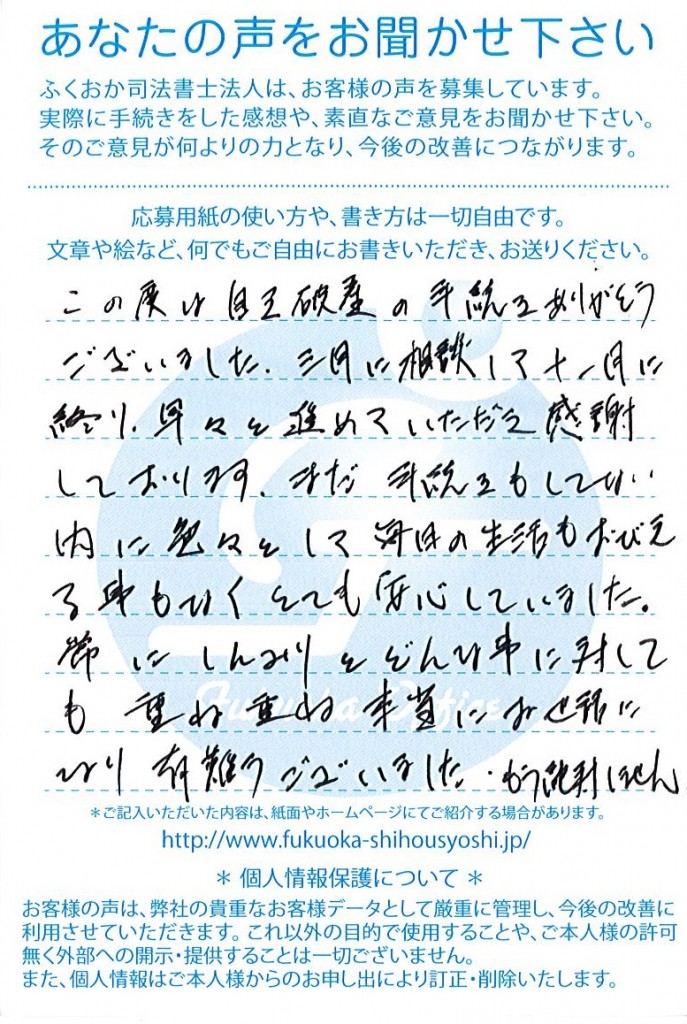 あなたの声をお聞かせ下さい
ふくおか司法書士法人は、お客様の声を募集しています。
実際に手続きをした感想や、素直なご意見をお聞かせ下さい。
そのご意見が何よりの力となり、今後の改善につながります。
応募用紙の使い方や、書き方は一切自由です。
文章や絵など、何でもご自由にお書きいただき、お送りください。
この度は自己破産の手続きありがとう
ございました。三月に相談して十一月に
終り、早々と進めていただき感謝
しております。まだ手続きもしてない
内に色々として毎日の生活もおびえ
る事もなくとても安心していました。
常にしんみりとどんな事に対して
も重ね重ね本当にお世話に
なり有難うございました。もう絶対しません
Fukuoka Office
＊ご記入いただいた内容は、紙面やホームページにてご紹介する場合があります。
http://www.fukuoka-shihousyoshi.jp/
＊ 個人情報保護について ＊
お客様の声は、弊社の貴重なお客様データとして厳重に管理し、今後の改善に
利用させていただきます。これ以外の目的で使用することや、ご本人様の許可
無く外部への開示・提供することは一切ございません。
また、個人情報はご本人様からのお申し出により訂正・削除いたします。